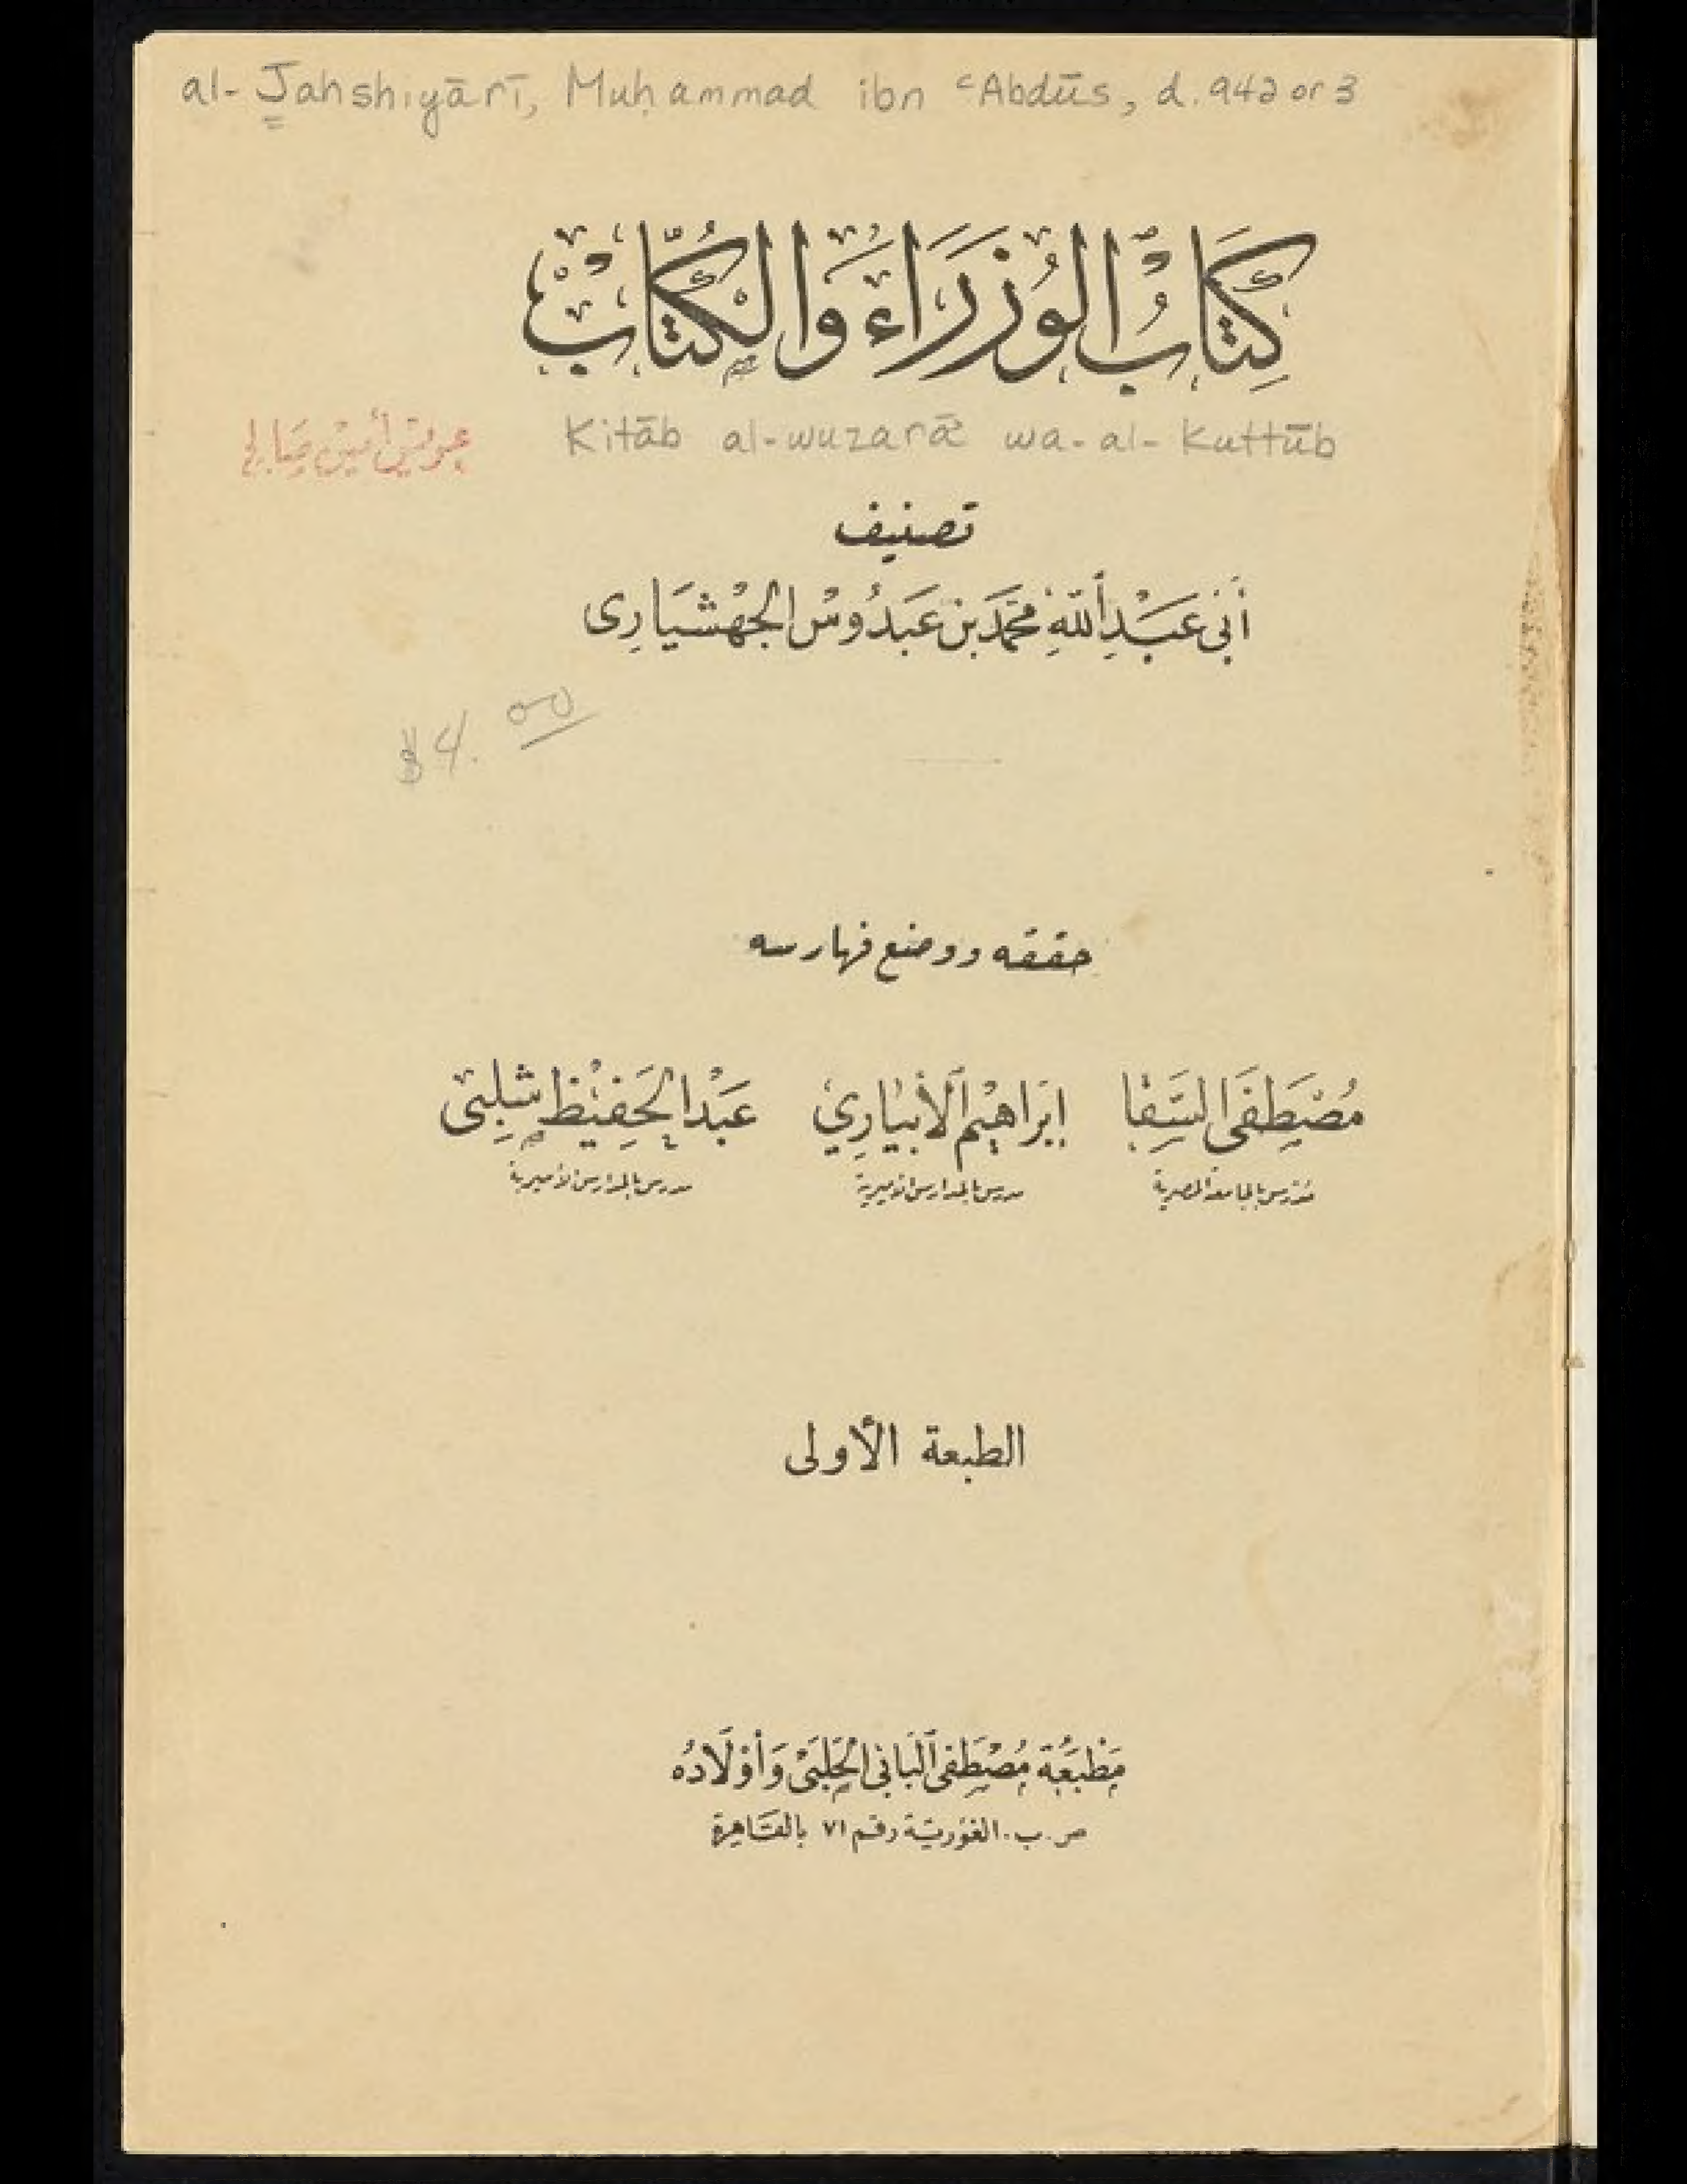 al-Jahshiyārī, Muḥammad ibn ʿAbdūs, d. 942 or 3
كِتَابُ الوُزَرَاءِ وَالكُتَّابِ
Kitāb al-wuzarāʾ wa-al-Kuttūb
تصنيف
أبي عَبْدِ اللهِ مُحَمَّد بن عَبدُوس الجَهْشَيَارِى
$4.00
حققه ووضع فهارسه
مُصْطَفَى السَّقَا إبْرَاهِيْم الأَبْيَارِي عَبْدُ الحَفِيْظ شَلَبِى
مدرس بالجامعة المصرية مدرس بالمدارس الأميرية مدرس بالمدارس الأميرية
الطبعة الأولى
مَطْبَعَة مُصْطَفَى البَابِي الحَلَبِى وَأَوْلَادُه
ص. ب. الغورية رقم ٧١ بالقاهرة